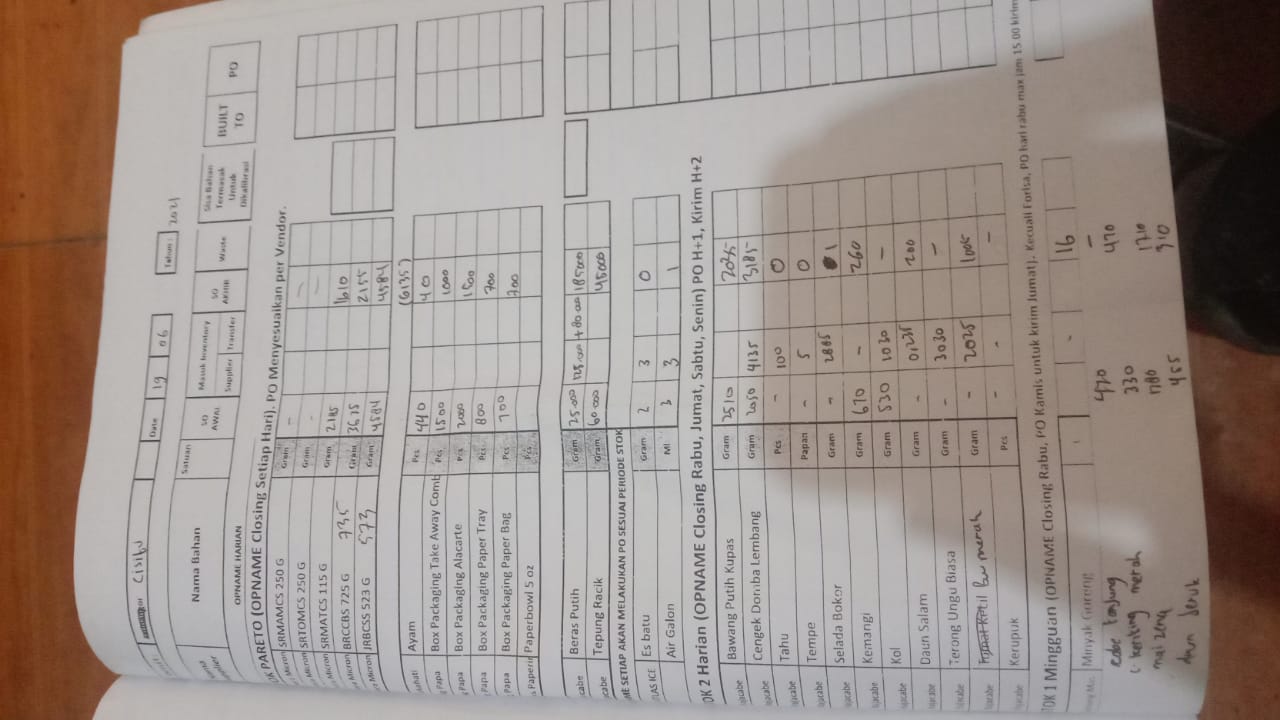 Cisitu Date 19 06 Tahun : 2021
Nama Bahan Satuan SO AWAL Masuk Inventory Supplier Transfer SO AKHIR Waste Sisa Bahan Termasuk Untuk Dikalibrasi BUILT TO PO
OPNAME HARIAN
PARETO (OPNAME Closing Setiap Hari). PO Menyesuaikan per Vendor.
Micron SRMAMCS 250 G Gram -
Micron SRTOMCS 250 G Gram -
Micron SRMATCS 115 G Gram 2185 1610
Micron BRCCBS 725 G 735 Gram 3675 2155
Micron JRBCSS 523 G 573 Gram 4584 4584
Ayam Pcs 440 (6135)
Papa Box Packaging Take Away Comb Pcs 1500 40
Papa Box Packaging Alacarte Pcs 2000 1000
Papa Box Packaging Paper Tray Pcs 800 1500
Papa Box Packaging Paper Bag Pcs 700 700
Paperbowl 5 oz 700
Beras Putih Gram 25.000 125.000 +80.000 185000
Tepung Racik Gram 60.000 45000
ME SETIAP AKAN MELAKUKAN PO SESUAI PERIODE STOK
LAS ICE Es batu Gram 2 3 0
Air Galon Ml 3 3 1
OK 2 Harian (OPNAME Closing Rabu, Jumat, Sabtu, Senin) PO H+1, Kirim H+2
Bawang Putih Kupas Gram 2510 2025
Cengek Domba Lembang Gram 2050 4135 3185
Tahu Pcs - 100 0
Tempe Papan - 5 0
Selada Bokor Gram - 2885 1
Kemangi Gram 670 - 260
Kol Gram 530 1030 -
Daun Salam Gram - 200
Terong Ungu Biasa Gram - 3030 -
merah Gram - 2025 1005
Kerupuk Pcs - - -
TOK 1 Mingguan (OPNAME Closing Rabu, PO Kamis untuk kirim Jumat). Kecuali Forisa, PO hari rabu max jam 15.00 kirim
Minyak Goreng - - 16
tanjung 470 -
kentang merah 330 470
maizena 1780 1710
daun Jeruk 455 910